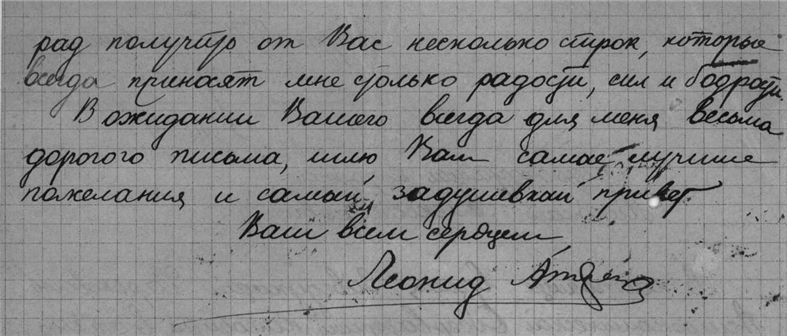 рад получить от Вас несколько строк, которые
всегда приносят мне столько радости, сил и бодрости.
В ожидании Вашего всегда для меня весьма
дорогого письма, шлю Вам самые лучшие
пожелания и самый задушевный привет
Ваш всем сердцем
Леонид